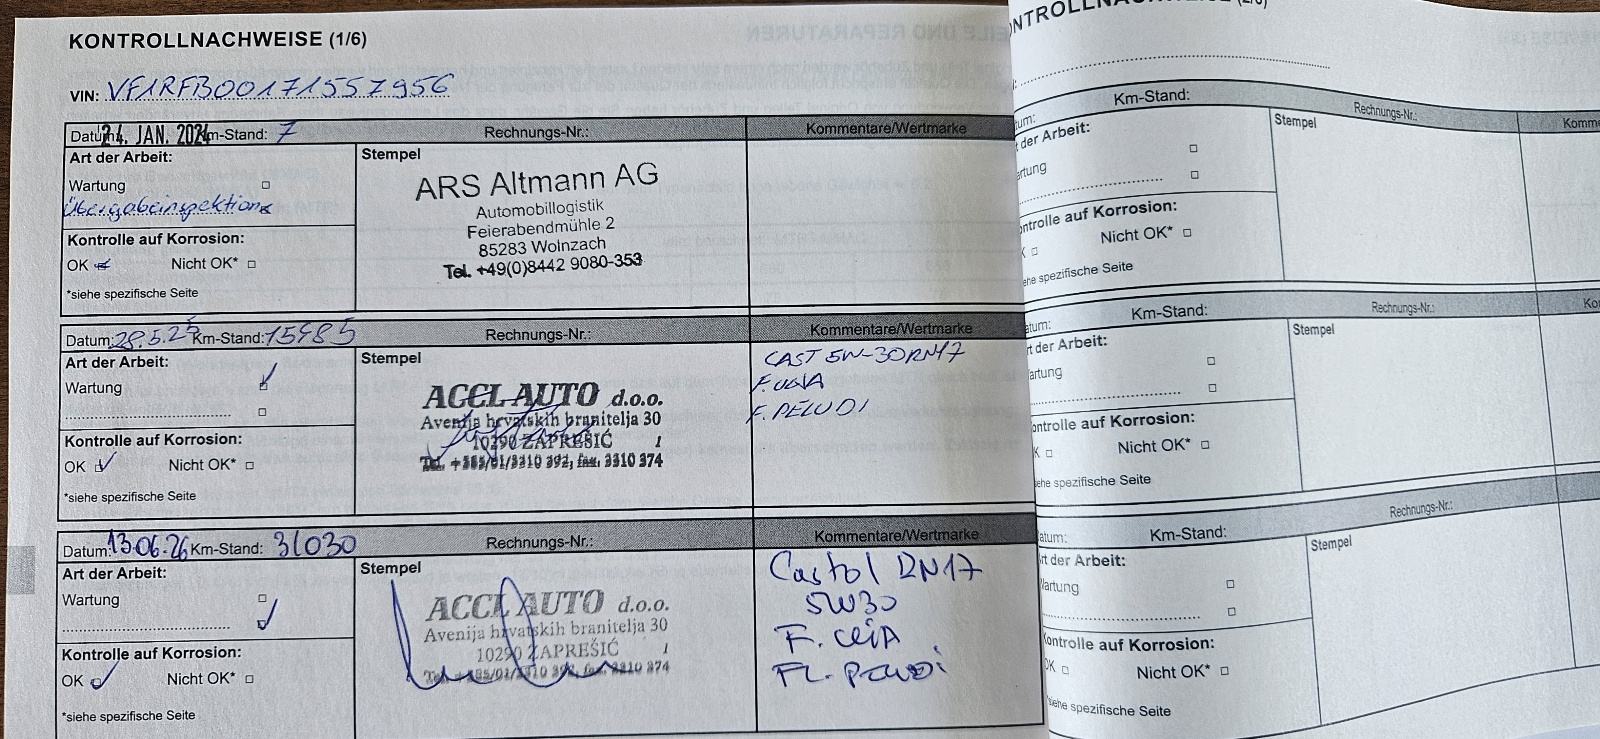 KONTROLLNACHWEISE (1/6)
VIN: VF1RFB00171557956
Datum: 24. JAN. 2024 Km-Stand: 7 Rechnungs-Nr.: Kommentare/Wertmarke
Art der Arbeit:
Wartung
Übergabeinspektion
Kontrolle auf Korrosion:
OK Nicht OK*
*siehe spezifische Seite
Stempel
ARS Altmann AG
Automobillogistik
Feierabendmühle 2
85283 Wolnzach
Tel. +49(0)8442 9080-353
Datum: 28.5.25 Km-Stand: 15485 Rechnungs-Nr.: Kommentare/Wertmarke
Art der Arbeit:
Wartung
Kontrolle auf Korrosion:
OK Nicht OK*
*siehe spezifische Seite
Stempel
ACCL AUTO d.o.o.
Avenija hrvatskih branitelja 30
10290 ZAPREŠIĆ 1
Tel. +385/01/3310 392, fax. 3310 374
CAST 5W-30 RN17
F. ULJA
F. PELUDI
Datum: 13.06.26 Km-Stand: 31030 Rechnungs-Nr.: Kommentare/Wertmarke
Art der Arbeit:
Wartung
Kontrolle auf Korrosion:
OK Nicht OK*
*siehe spezifische Seite
Stempel
ACCL AUTO d.o.o.
Avenija hrvatskih branitelja 30
10290 ZAPREŠIĆ 1
Tel. +385/01/3310 392, fax. 3310 374
Castol RN17
5W30
F. ulja
FL. Peludi
ONTROLLNACHWEISE (2/6)
Km-Stand: Rechnungs-Nr.:
der Arbeit:
artung
ontrolle auf Korrosion:
K Nicht OK*
ehe spezifische Seite
Stempel
atum: Km-Stand: Rechnungs-Nr.:
rt der Arbeit:
artung
ontrolle auf Korrosion:
K Nicht OK*
ehe spezifische Seite
Stempel
atum: Km-Stand: Rechnungs-Nr.:
rt der Arbeit:
Wartung
ontrolle auf Korrosion:
OK Nicht OK*
siehe spezifische Seite
Stempel